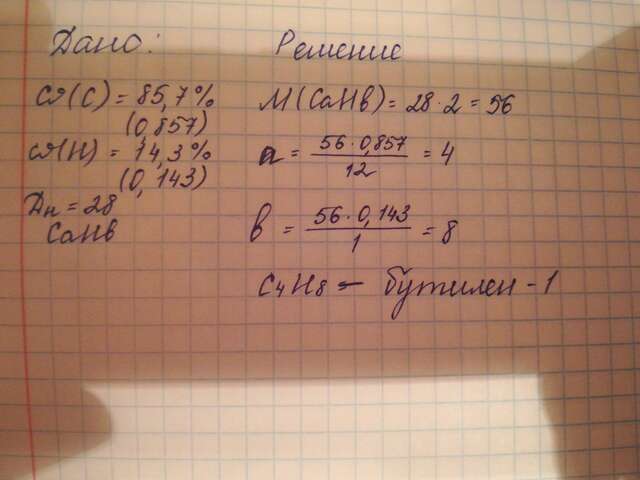 Дано:
Решение
ω(C) = 85,7%
(0,857)
ω(H) = 14,3%
(0,143)
Dн = 28
CaHb
M(CaHb) = 28·2 = 56
a = 56·0,857 / 12 = 4
b = 56·0,143 / 1 = 8
C4H8 – бутилен-1